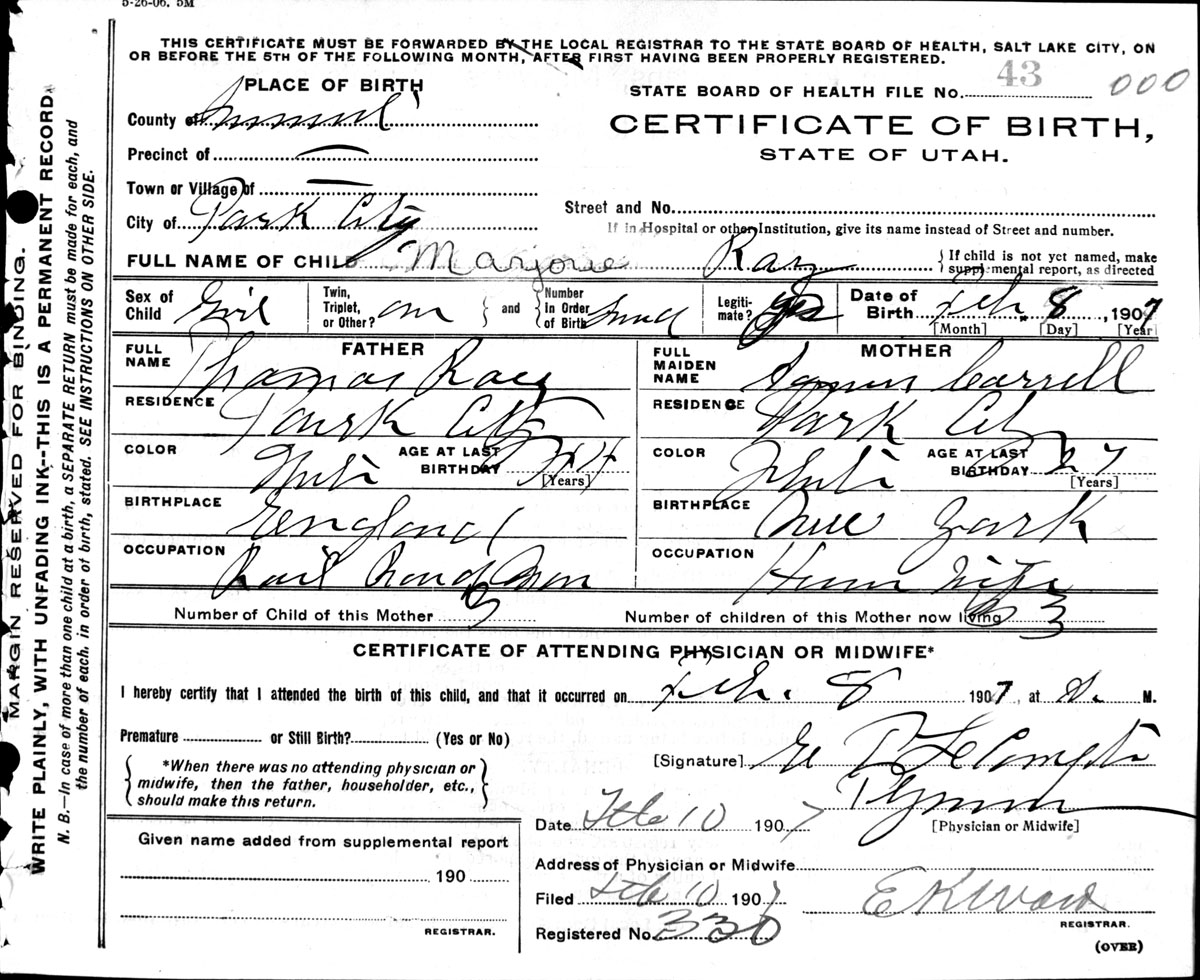 5-26-06. 5M
THIS CERTIFICATE MUST BE FORWARDED BY THE LOCAL REGISTRAR TO THE STATE BOARD OF HEALTH, SALT LAKE CITY, ON
OR BEFORE THE 5TH OF THE FOLLOWING MONTH, AFTER FIRST HAVING BEEN PROPERLY REGISTERED.
PLACE OF BIRTH
STATE BOARD OF HEALTH FILE No. 43 000
County of Summit
CERTIFICATE OF BIRTH,
STATE OF UTAH.
Precinct of —
Town or Village of —
City of Park City
Street and No.
If in Hospital or other Institution, give its name instead of Street and number.
FULL NAME OF CHILD Marjorie Ray
If child is not yet named, make supplemental report, as directed
Sex of Child Girl
Twin, Triplet, or Other? and Number In Order of Birth
Legitimate? Yes
Date of Birth Feb. 8, 1907
[Month] [Day] [Year]
FATHER
FULL NAME Thomas Ray
RESIDENCE Park City
COLOR White AGE AT LAST BIRTHDAY 44
[Years]
BIRTHPLACE England
OCCUPATION Rail Road Man
MOTHER
FULL MAIDEN NAME Carrell
RESIDENCE Park City
COLOR White AGE AT LAST BIRTHDAY 27
[Years]
BIRTHPLACE New York
OCCUPATION House Wife
Number of Child of this Mother 3
Number of children of this Mother now living 3
CERTIFICATE OF ATTENDING PHYSICIAN OR MIDWIFE*
I hereby certify that I attended the birth of this child, and that it occurred on Feb. 8 1907, at M.
Premature or Still Birth? (Yes or No)
*When there was no attending physician or
midwife, then the father, householder, etc.,
should make this return.
[Signature] E P LeCompte
[Physician or Midwife]
Date Feb 10 1907
Given name added from supplemental report
190
REGISTRAR.
Address of Physician or Midwife
Filed Feb 10 1907
E K Ward
REGISTRAR.
Registered No. 330
(OVER)
MARGIN RESERVED FOR BINDING.
WRITE PLAINLY, WITH UNFADING INK--THIS IS A PERMANENT RECORD.
N. B.—In case of more than one child at a birth, a SEPARATE RETURN must be made for each, and
the number of each, in order of birth, stated. SEE INSTRUCTIONS ON OTHER SIDE.